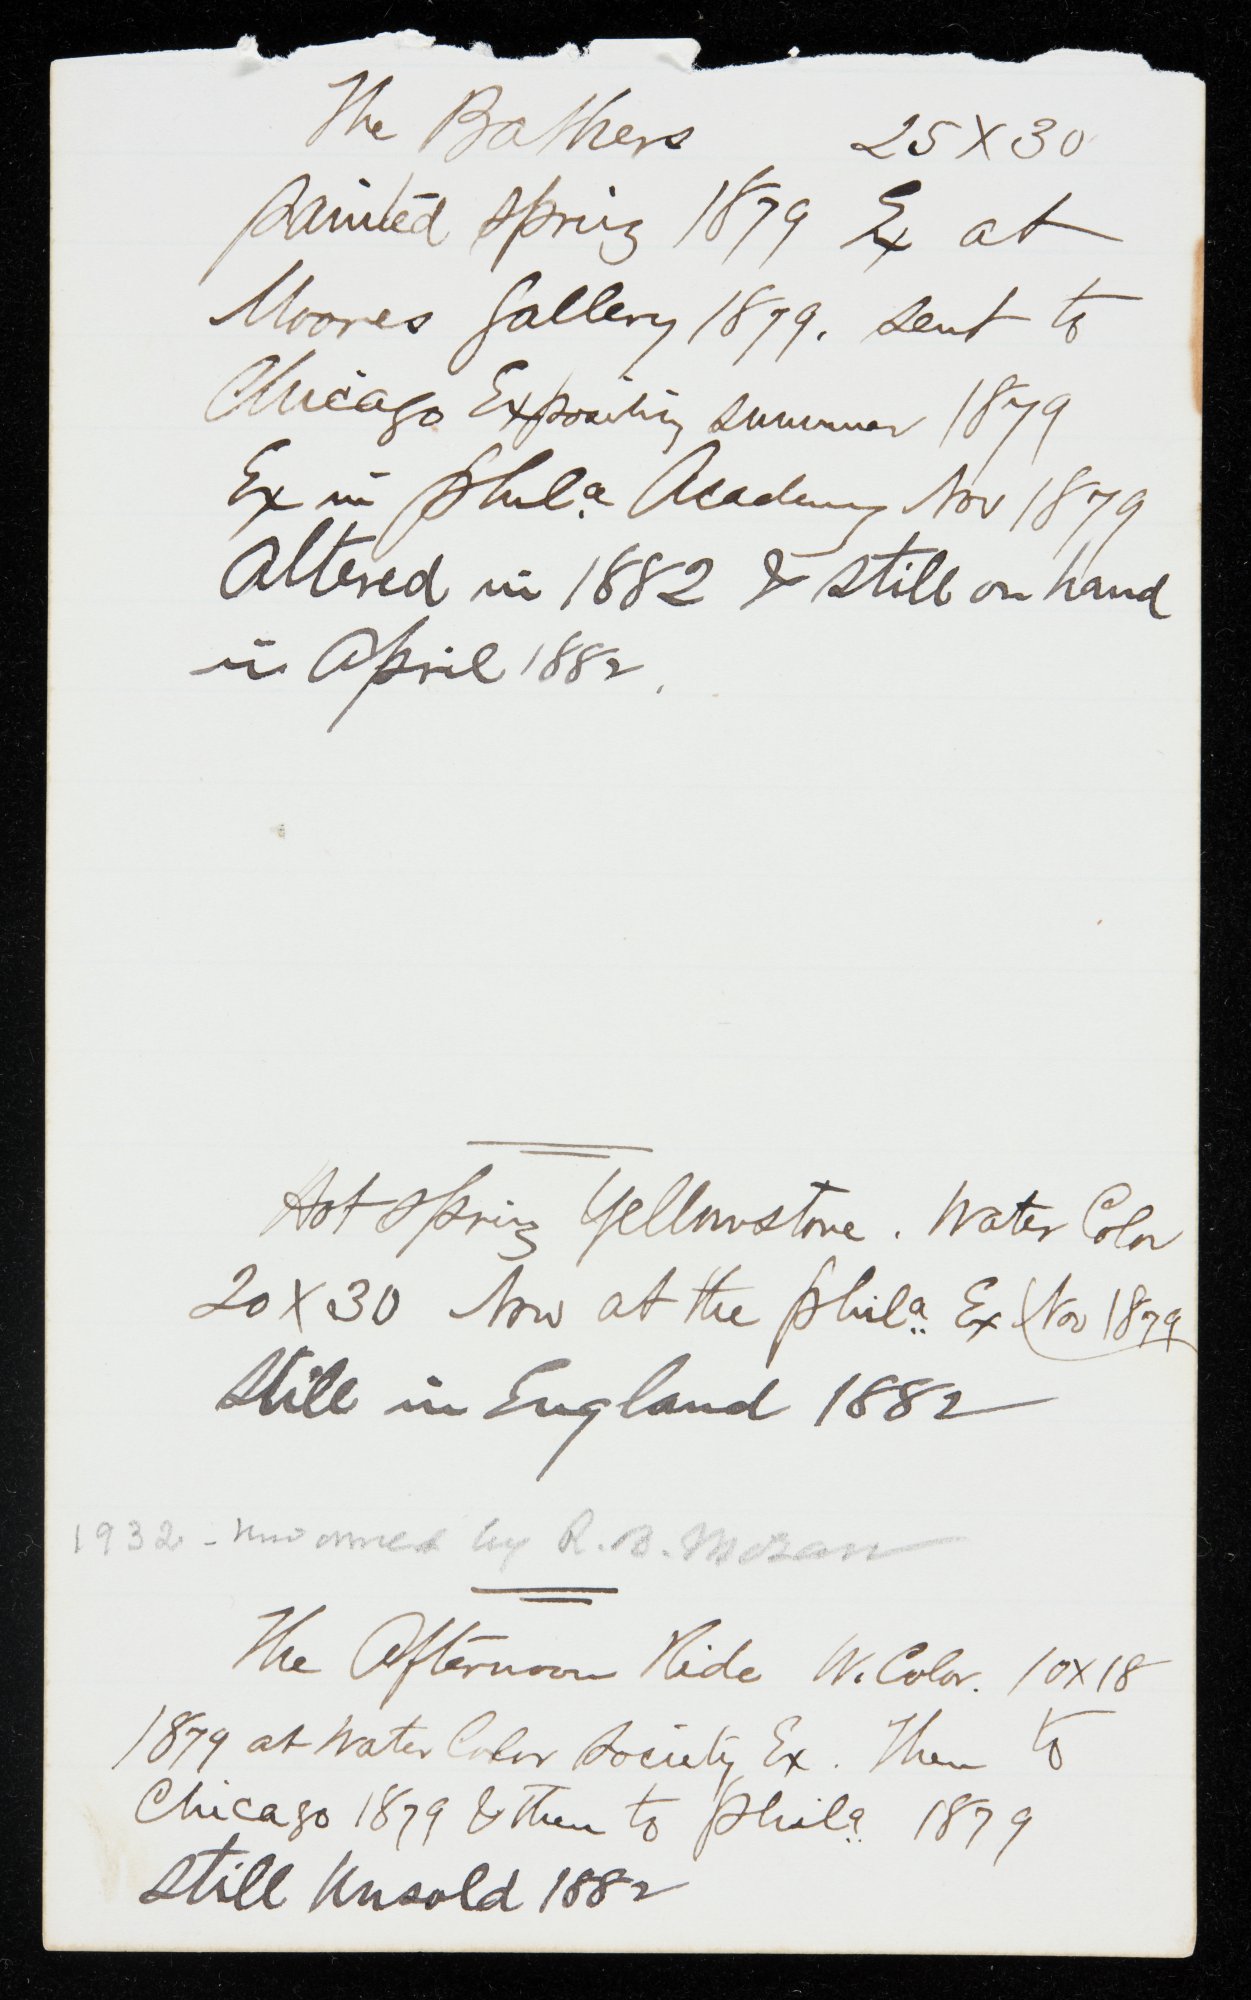 The Bathers 25 X 30
painted spring 1879 Ex at
Moores Gallery 1879. sent to
Chicago Exposition summer 1879
Ex in Phila Academy Nov 1879
altered in 1882 & still on hand
in April 1882.
Hot Spring Yellowstone. Water Color
20 X 30 Now at the Phila. Ex (Nov 1879
Still in England 1882
1932 - now owned by R. B. Moran
The Afternoon Ride W. Color. 10X18
1879 at Water Color Society Ex. Then to
Chicago 1879 & then to Phila. 1879
Still Unsold 1882